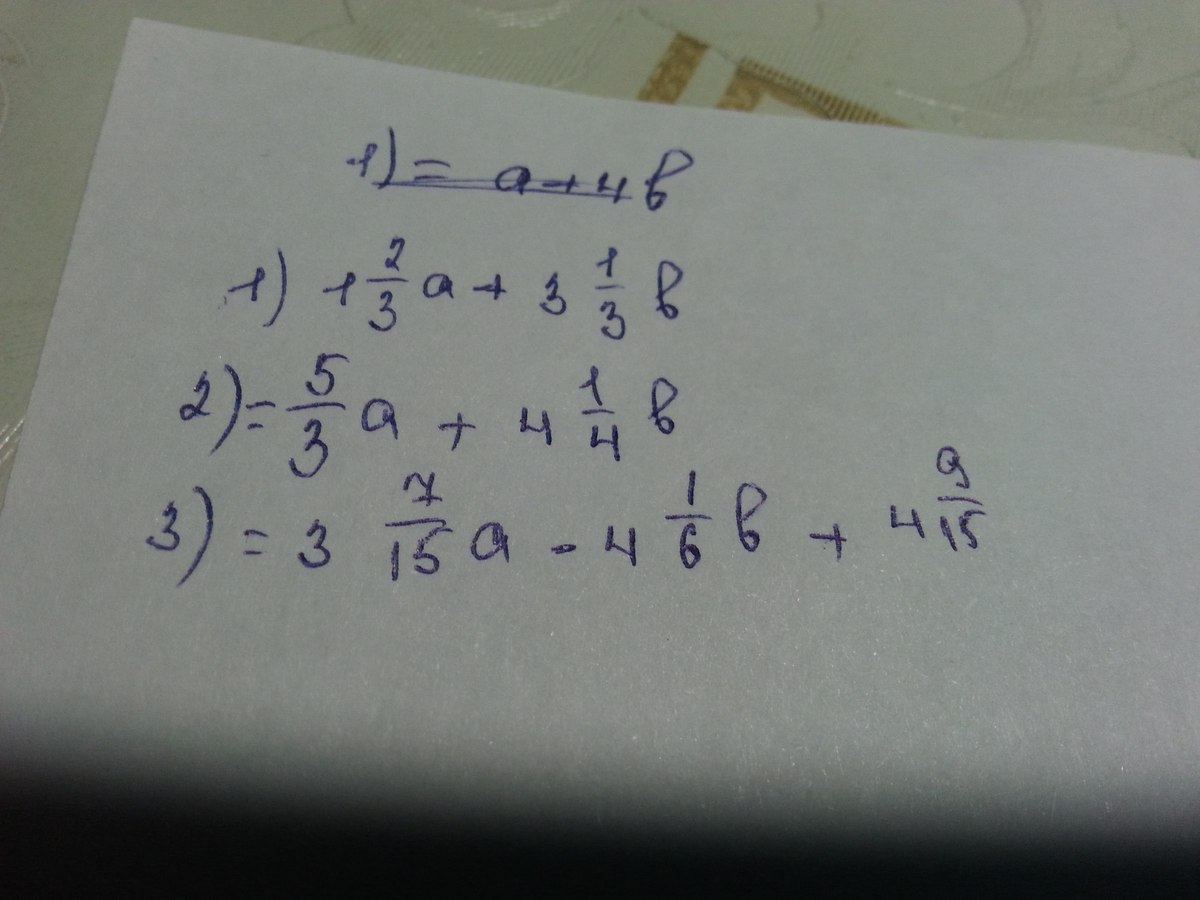 1) = a + 4b
1) 1 2/3 a + 3 1/3 b
2) = 5/3 a + 4 1/4 b
3) = 3 7/15 a - 4 1/6 b + 4 9/15